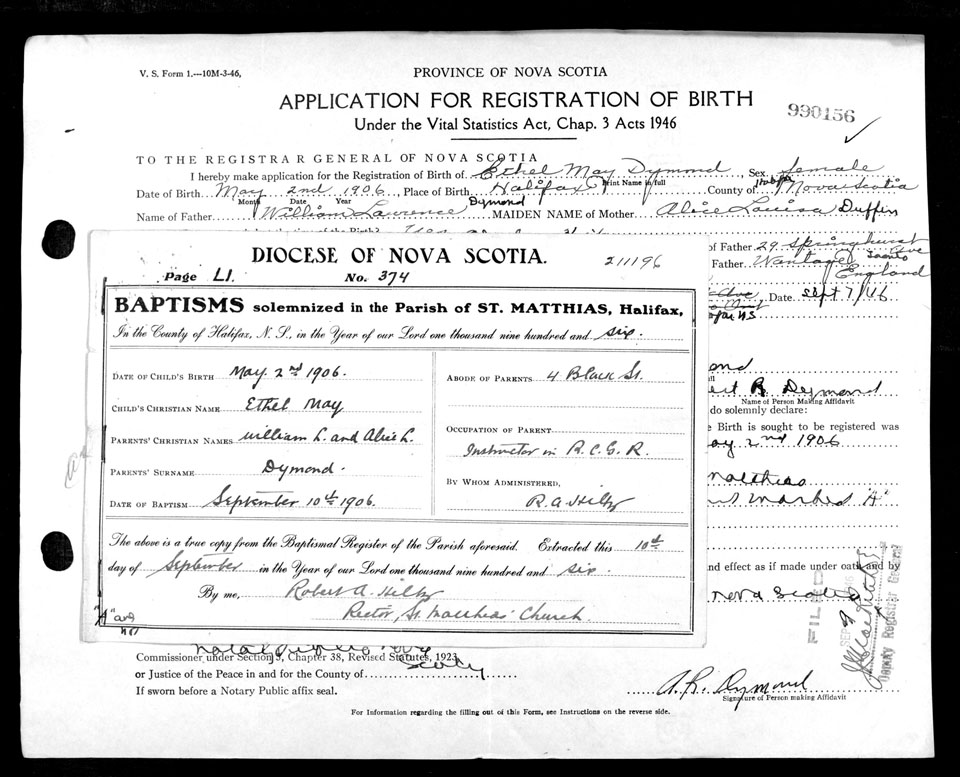 V. S. Form 1.---10M-3-46,
PROVINCE OF NOVA SCOTIA
APPLICATION FOR REGISTRATION OF BIRTH
990156
Under the Vital Statistics Act, Chap. 3 Acts 1946
TO THE REGISTRAR GENERAL OF NOVA SCOTIA
I hereby make application for the Registration of Birth of Ethel May Dymond, Sex female
Print Name in full
Date of Birth May 2nd 1906, Place of Birth Halifax County of Halifax Nova Scotia
Month Date Year
Name of Father William Lawrence Dymond MAIDEN NAME of Mother Alice Louisa Duffin
of the Birth?
of Father 29 Springhurst Ave
Father Wantage England
, Date Sept 7/46
DIOCESE OF NOVA SCOTIA.
211196
Page LI. No. 374
BAPTISMS solemnized in the Parish of ST. MATTHIAS, Halifax,
In the County of Halifax, N. S., in the Year of our Lord one thousand nine hundred and six.
DATE OF CHILD'S BIRTH May. 2nd 1906.
CHILD'S CHRISTIAN NAME Ethel May
PARENTS' CHRISTIAN NAMES William L. and Alice L.
PARENTS' SURNAME Dymond.
DATE OF BAPTISM September 10th 1906.
ABODE OF PARENTS 4 Black St.
OCCUPATION OF PARENT
Instructor in R.C.G.R.
BY WHOM ADMINISTERED,
R.A. Hiltz
The above is a true copy from the Baptismal Register of the Parish aforesaid. Extracted this 10th
day of September in the Year of our Lord one thousand nine hundred and six.
By me, Robert A. Hiltz
Rector, St. Matthias' Church.
"A"
R. Dymond
Name of Person Making Affidavit
do solemnly declare:
Birth is sought to be registered was
May 2nd 1906
Matthias
Marked "A"
and effect as if made under oath and by
Nova Scotia
FILED
SEP 9
Deputy Registrar General
Commissioner under Section 9, Chapter 38, Revised Statutes, 1923
or Justice of the Peace in and for the County of
If sworn before a Notary Public affix seal.
A. R. Dymond
Signature of Person making Affidavit
For Information regarding the filling out of this Form, see Instructions on the reverse side.